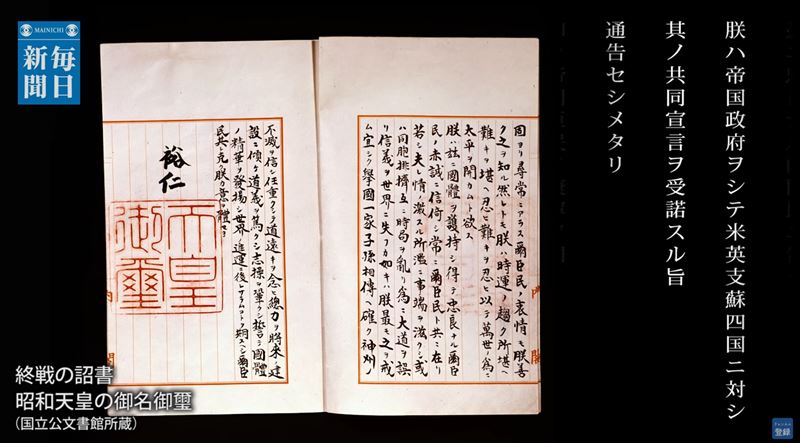 朕ハ帝国政府ヲシテ米英支蘇四国ニ対シ
其ノ共同宣言ヲ受諾スル旨
通告セシメタリ
MAINICHI
毎日
新聞
固ヨリ尋常ニアラス爾臣民ノ衷情モ朕善
ク之ヲ知ル然レトモ朕ハ時運ノ趨ク所堪ヘ
難キヲ堪ヘ忍ヒ難キヲ忍ヒ以テ萬世ノ爲ニ
太平ヲ開カムト欲ス
朕ハ茲ニ國體ヲ護持シ得テ忠良ナル爾臣
民ノ赤誠ニ信倚シ常ニ爾臣民ト共ニ在リ
若シ夫レ情ノ激スル所濫ニ事端ヲ滋クシ或
ハ同胞排擠互ニ時局ヲ亂リ爲ニ大道ヲ誤
リ信義ヲ世界ニ失フカ如キハ朕最モ之ヲ戒
ム宜シク擧國一家子孫相傳ヘ確ク神州ノ
不滅ヲ信シ任重クシテ道遠キヲ念ヒ總力ヲ將來ノ建
設ニ傾ケ道義ヲ篤クシ志操ヲ鞏クシ誓テ國體
ノ精華ヲ發揚シ世界ノ進運ニ後レサラムコトヲ期スヘシ爾臣
民其レ克ク朕カ意ヲ體セヨ
裕仁
天皇
御璽
終戦の詔書
昭和天皇の御名御璽
(国立公文書館所蔵)
チャンネル
登録